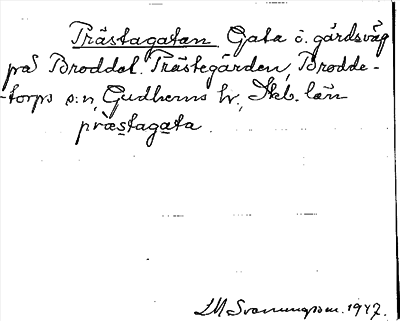 Prästagatan. Gata o. gårdsväg
på Broddet. Prästegården, Brodde-
-torps s:n, Gudhems hr, Skb. län
præstagata.
LM Svenungsson. 1947.